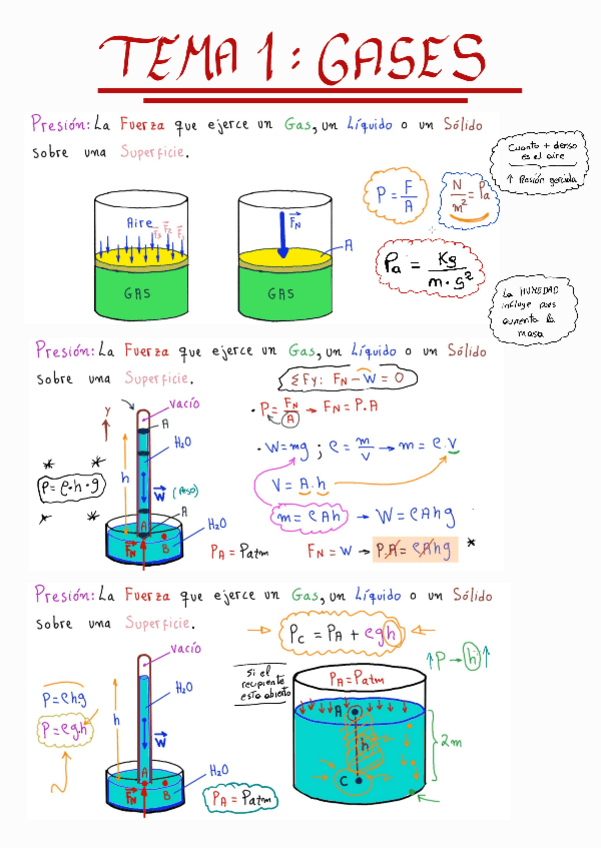 TEMA 1: GASES
Presión: La Fuerza que ejerce un Gas, un Líquido o un Sólido
sobre una Superficie.
Cuanto + denso
es el aire
↑ Presión
P = F/A
N/m² = Pa
Aire
F₂
F₁
GAS
F_N
A
GAS
Pa = Kg/m·s²
La HUMEDAD
influye pues
aumenta la
masa
Presión: La Fuerza que ejerce un Gas, un Líquido o un Sólido
sobre una Superficie.
ΣFy: F_N - W = 0
y
vacío
A
H₂O
h
W
(Peso)
A
A
B
F_N
H₂O
* *
P = ρ·h·g
* *
P_A = Patm
· P = F_N/A → F_N = P.A
· W = mg ; ρ = m/V → m = ρ.V
V = A.h
m = ρAh → W = ρAhg
F_N = W → P.A = ρAhg *
Presión: La Fuerza que ejerce un Gas, un Líquido o un Sólido
sobre una Superficie.
→ P_C = P_A + ρgh ←
↑P → h↑
vacío
H₂O
h
W
A
B
F_N
H₂O
P = ρhg
P = ρgh
P_A = Patm
Si el
recipiente
esta abierto
P_A = Patm
A
h
C
2m